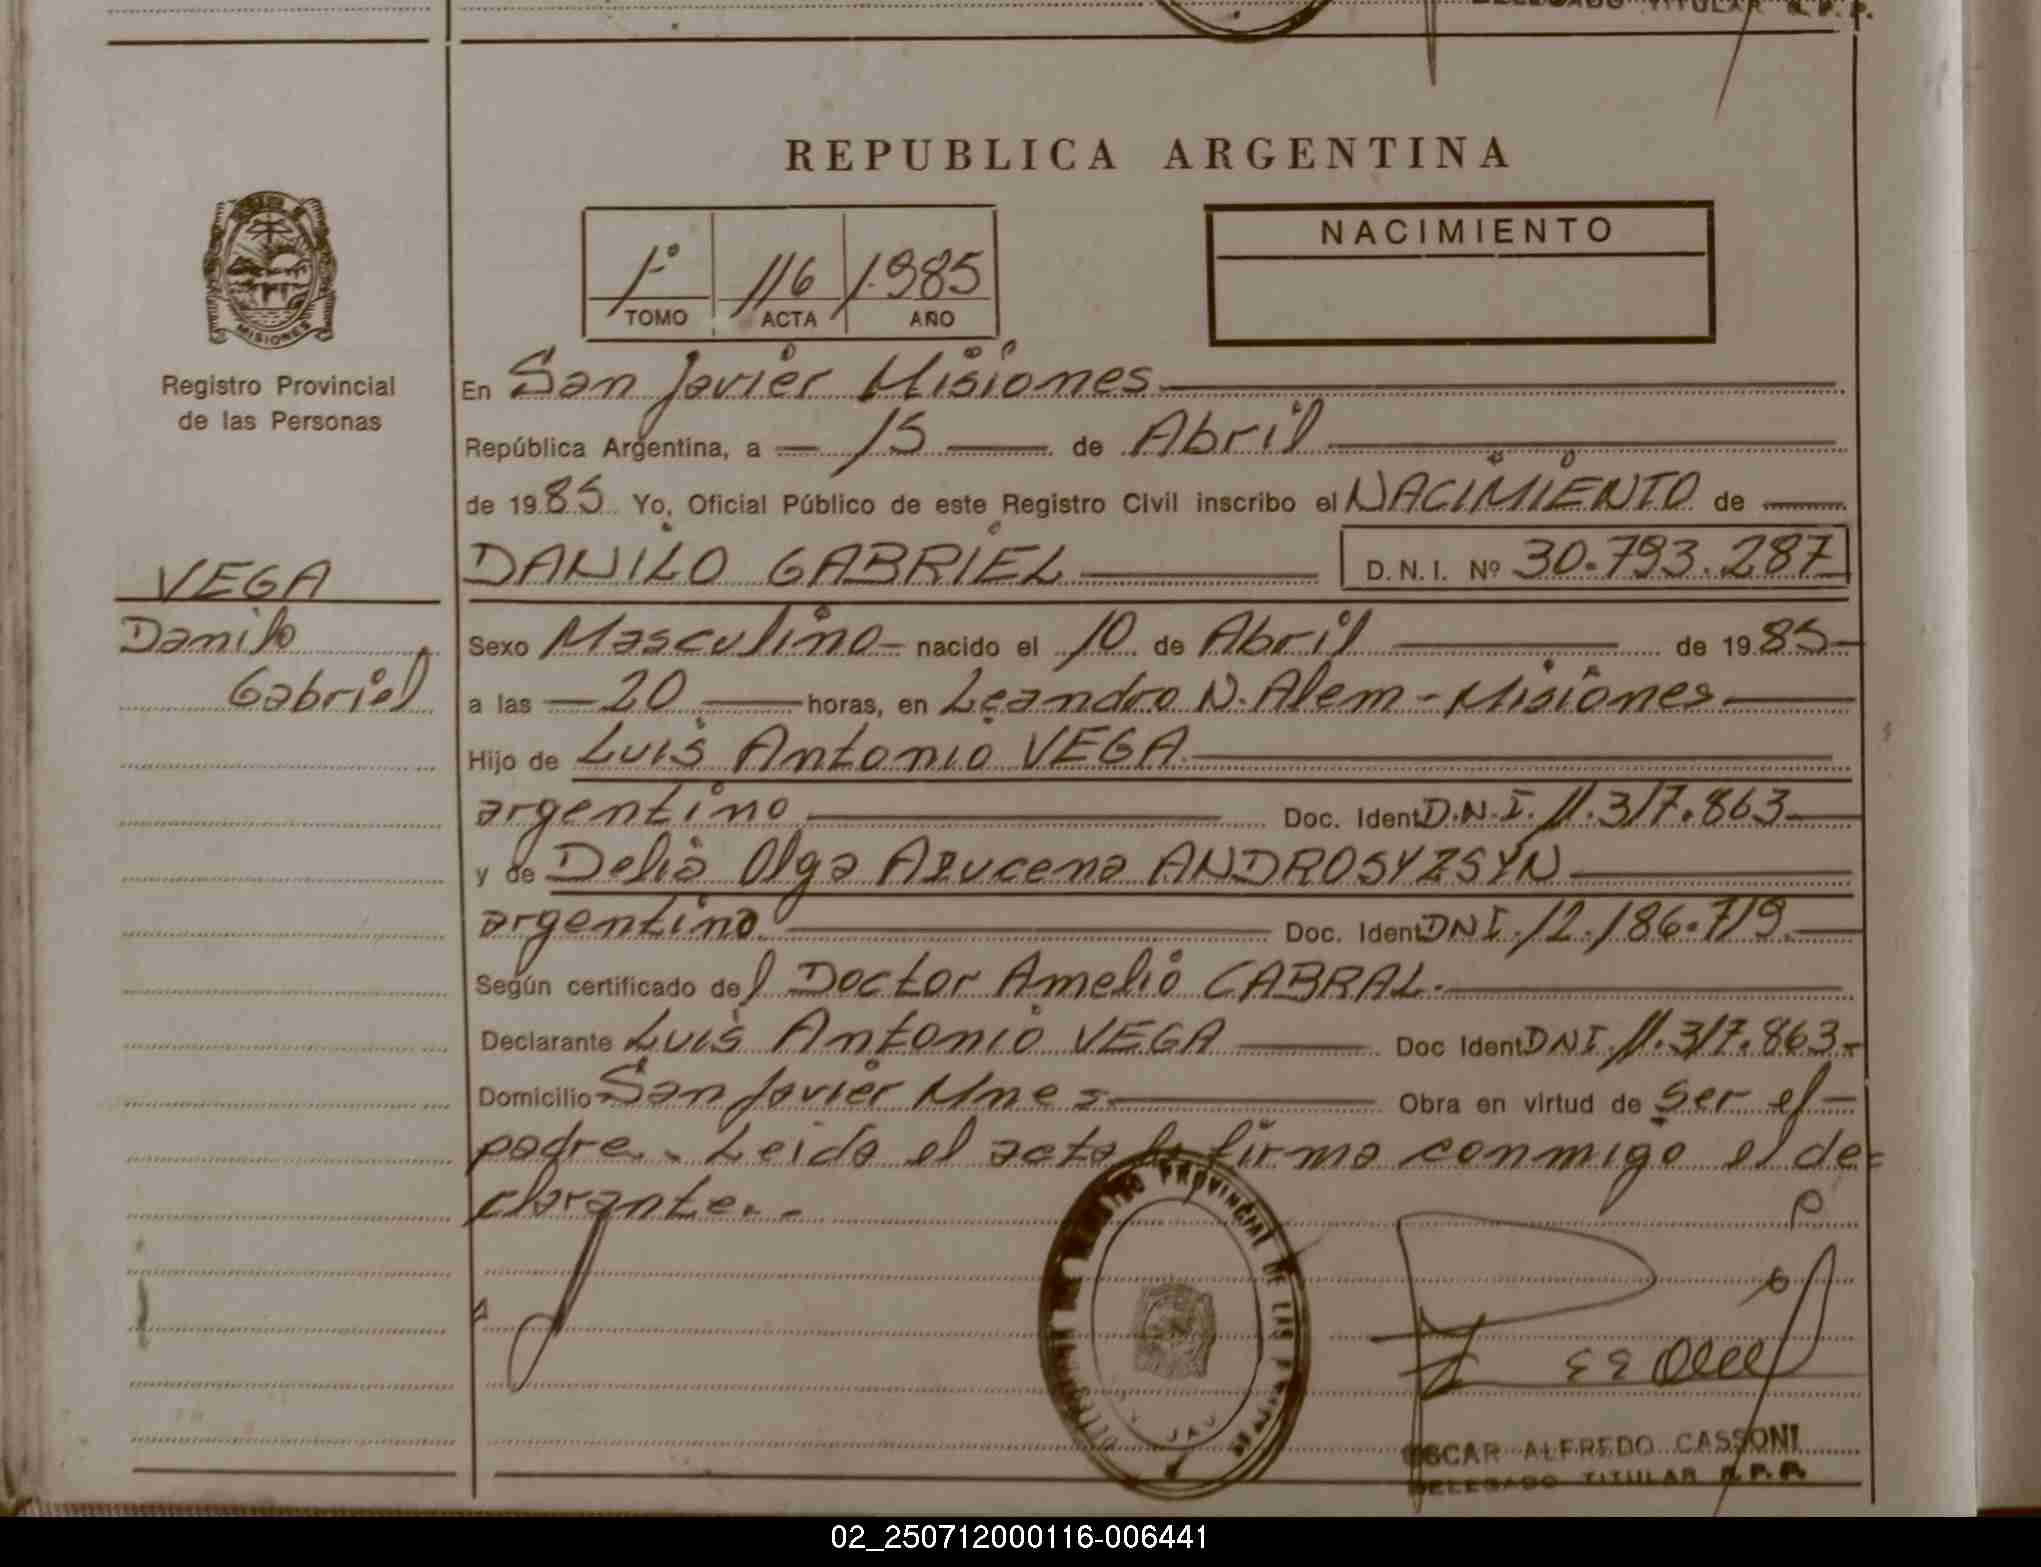 DELEGADO TITULAR R.P.P.
REPUBLICA ARGENTINA
NACIMIENTO
1º 116 1.985
TOMO ACTA AÑO
MISIONES
Registro Provincial
de las Personas
En San Javier Misiones
República Argentina, a 15 de Abril
de 1985 Yo, Oficial Público de este Registro Civil inscribo el NACIMIENTO de
DANILO GABRIEL D.N.I. Nº 30.793.287
VEGA
Danilo
Gabriel
Sexo Masculino nacido el 10 de Abril de 1985
a las 20 horas, en Leandro N. Alem - Misiones
Hijo de Luis Antonio VEGA
argentino Doc. Ident D.N.I. 11.317.863
y de Delia Olga Azucena ANDROSYZSYN
argentina Doc. Ident DNI. 12.186.719.
Según certificado del Doctor Amelio CABRAL.
Declarante Luis Antonio VEGA Doc Ident DNI. 11.317.863-
Domicilio San Javier Mnes. Obra en virtud de ser el
padre.- Leida el acta la firma conmigo el de=
clarante.-
REGISTRO PROVINCIAL DE LAS
OSCAR ALFREDO CASSONI
DELEGADO TITULAR R.P.P.
02_250712000116-006441